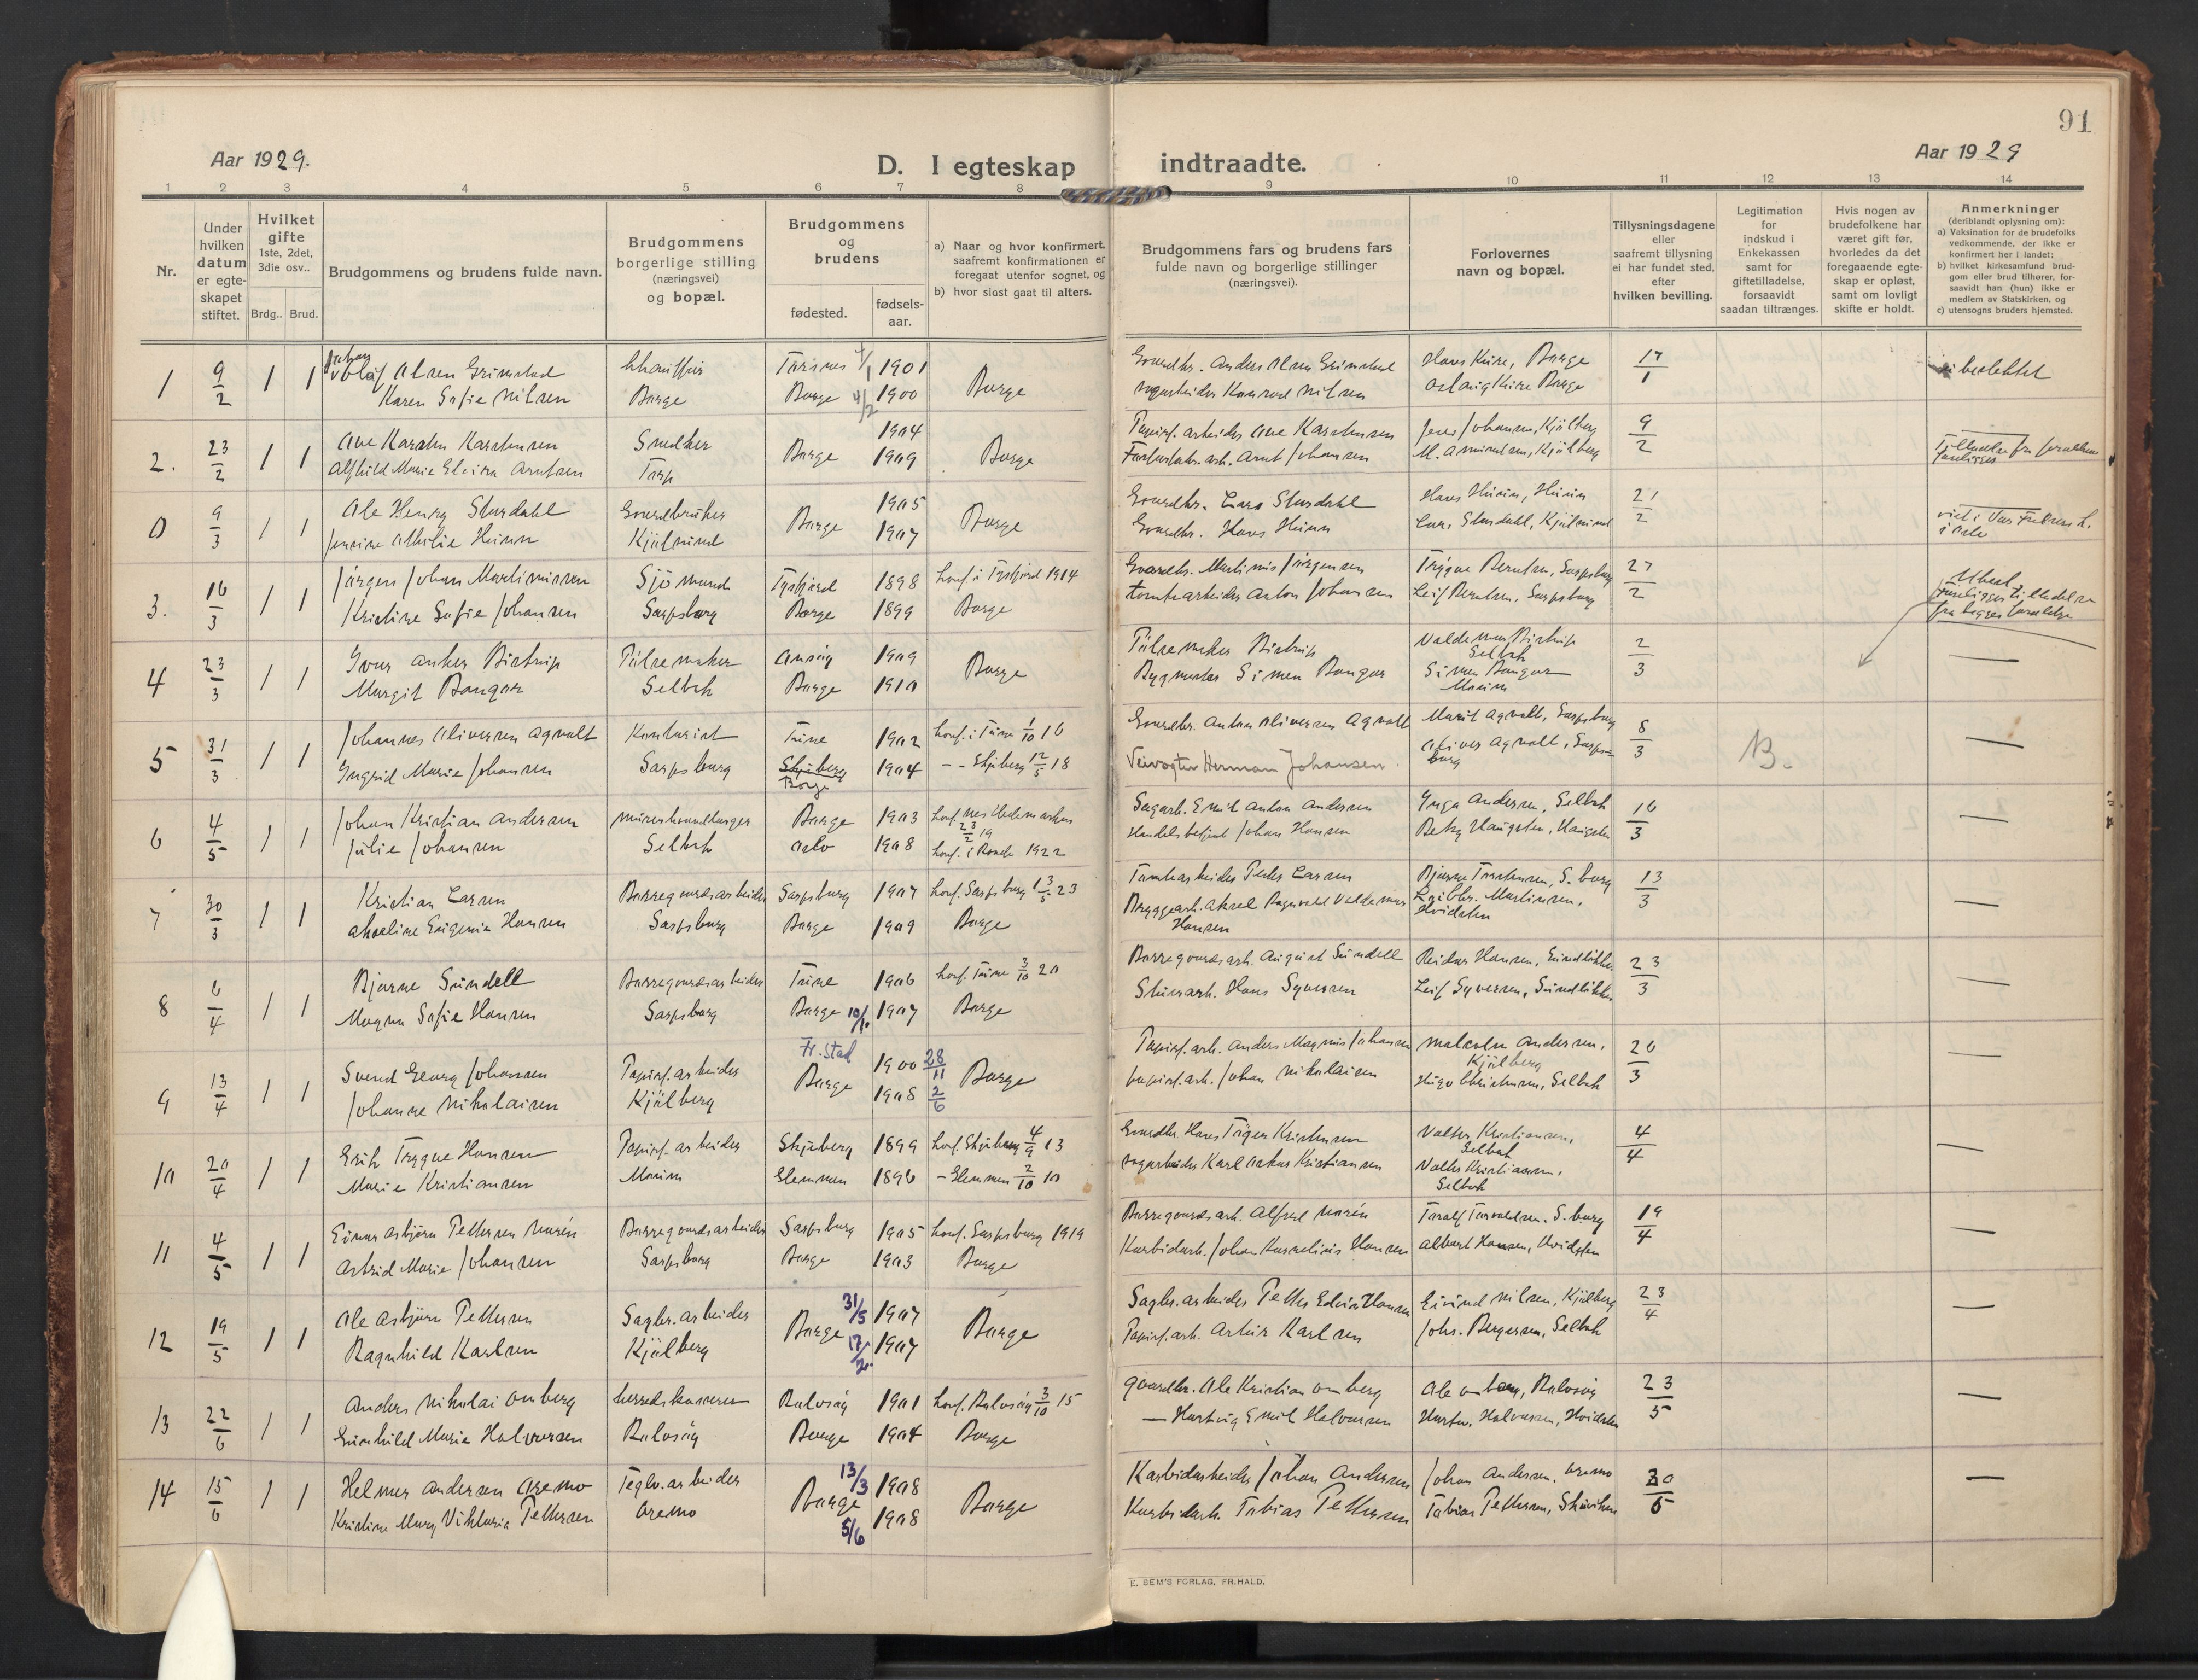 91
Aar 1929.
D. I egteskap indtraadte.
Aar 1929
1 2 3 4 5 6 7 8 9 10 11 12 13 14
Nr.
Under hvilken datum er egteskapet stiftet.
Hvilket gifte 1ste, 2det, 3die osv..
Brdg.. Brud.
Brudgommens og brudens fulde navn.
Brudgommens borgerlige stilling (næringsvei) og bopæl.
Brudgommens og brudens
fødested.
fødsels-aar.
a) Naar og hvor konfirmert, saafremt konfirmationen er foregaat utenfor sognet, og
b) hvor sidst gaat til alters.
Brudgommens fars og brudens fars fulde navn og borgerlige stillinger (næringsvei).
Forlovernes navn og bopæl.
Tillysningsdagene eller saafremt tillysning ei har fundet sted, efter hvilken bevilling.
Legitimation for indskud i Enkekassen samt for giftetilladelse, forsaavidt saadan tiltrænges.
Hvis nogen av brudefolkene har været gift før, hvorledes da det foregaaende egteskap er opløst, samt om lovligt skifte er holdt.
Anmerkninger (deriblandt oplysning om):
a) Vaksination for de brudefolks vedkommende, der ikke er konfirmert her i landet;
b) hvilket kirkesamfund brudgom eller brud tilhører, forsaavidt han (hun) ikke er medlem av Statskirken, og
c) utensogns bruders hjemsted.
1 9/2 1 1 Johan Olaf Olsen Grimstad Chauffør 1901 Gaardbr. Anders Olsen Grimstad Hans Kure, Borge 17/1
Karen Sofie Nilsen Borge Borge 4/2 1900 Borge Konrad Nilsen Aslaug Kure Borge
2. 23/2 1 1 Ove Karsten Karstensen Snedker 1904 Papirf. arbeider Ove Karstensen Jens Johansen, Kjølberg 9/2
Alfhild Marie Elvira Arntsen Torp Borge 1909 Borge Arnt Johansen M. Amundsen, Kjølberg
0 9/3 1 1 Ole Henry Stordahl Gaardbruker 1905 Gaardbr. Lars Stordahl Hans Hunn, Hunn 21/2
Jensine Othilie Hunn Borge 1907 Borge Gaardbr. Hans Hunn Lars Stordahl
viet i Vor Frelsers k. i Oslo
3. 16/3 1 1 Jørgen Johan Martinussen Sjømand Tysfjord 1898 konf. i Tysfjord 1914 Gaardbr. Martinus Jørgensen Trygve Berntsen, Sarpsborg 27/2
Kristine Sofie Johansen Sarpsborg Borge 1899 Borge Tomtearbeider Anton Johansen Leif Berntsen, Sarpsborg
4 23/3 1 1 Ivar Anker Bistrup Pølsemaker 1909 Pølsemaker Bistrup Valdemar Bistrup Selbak 2/3
Margit Bangor Selbak Borge 1910 Borge Bygmester Simen Bangor Simen Bangor Moum
5 31/3 1 1 Johannes Oliversen Agnalt Kontorist Tune 1902 konf. i Tune 1/10 16 Gaardbr. Anton Oliversen Agnalt Marit Agnalt, Sarpsborg 8/3 B.
Ingrid Marie Johansen Sarpsborg Skjeberg Borge 1904 – – Skjeberg 12/5 18 Veivogter Herman Johansen. Oliver Agnalt, Sarpsborg
6 4/5 1 1 Johan Kristian Andersen Selbak Borge 1903 konf. Nes Hedemarken 23/2 19 Sagarb. Emil Anton Andersen Inga Andersen, Selbak 16/3
Julie Johansen Oslo 1908 konf. i Raade 1922 Handelsbetjent Johan Hansen Betzy Haugsten, Haugsten
7 30/3 1 1 Kristian Larsen Borregaardsarbeider Sarpsborg 1907 konf. Sarpsborg 13/5 23 Tomtearbeider Peder Larsen Bjarne Torstensen, S.borg 13/3
Akseline Eugenie Hansen Sarpsborg Borge 1909 Borge Bryggearb. Aksel Ragnvald Valdemar Hansen Martinsen, Hvidsten
8 6/4 1 1 Bjarne Sundell Borregaardsarbeider Tune 1906 konf. Tune 3/10 20 Borregaardsarb. August Sundell Reidar Hansen, Sundløkken 23/3
Magna Sofie Hansen Sarpsborg Borge 10/10 1907 Borge Hans Syversen Leif Syversen, Sundløkken
9 13/4 1 1 Svend Georg Johansen Papirf. arbeider Fr.stad 1900 28/11 Papirf. arb. Anders Magnus Johansen Malcolm Andersen, Kjølberg 26/3
Johanne Nikolaisen Kjølberg Borge 1908 2/6 Borge Papirf. arb. Johan Nikolaisen Hugo Christensen, Selbak
10 20/4 1 1 Erik Trygve Hansen Papirf. arbeider Skjeberg 1899 konf. Skjeberg 4/9 13 Gaardbr. Hans Kristensen Valter Kristiansen, Selbak 4/4
Marie Kristiansen Moum Glemmen 1896 – Glemmen 2/10 10 Karl Oskar Kristiansen Valter Kristiansen, Selbak
11 4/5 1 1 Einar Asbjørn Pettersen Norén Borregaardsarbeider Sarpsborg 1905 konf. Sarpsborg 1919 Borregaardsarb. Alfred Norén Toralf Torvaldsen, S.borg 19/4
Astrid Marie Johansen Sarpsborg Borge 1903 Borge Karbidarb. Johan Kornelius Hansen Albert Hansen, Hvidsten
12 19/5 1 1 Ole Asbjørn Pettersen Sagbr. arbeider 31/5 1907 Sagbr. arbeider Petter Edvin Hansen Eivind Nilsen, Kjølberg 23/4
Ragnhild Karlsen Kjølberg Borge 1907 Borge Papirf. arb. Artur Karlsen Johs. Bergersen, Selbak
13 22/6 1 1 Anders Nikolai Omberg Herredskasserer Rolvsøy 1901 konf. Rolvsøy 3/10 15 Gaardbr. Ole Kristian Omberg Ole Omberg, Rolvsøy 23/5
Gunhild Marie Halvorsen Rolvsøy Borge 1904 Borge — Hartvig Emil Halvorsen Hartv. Halvorsen, Hvidsten
14 15/6 1 1 Helmer Andersen Oremo Teglv. arbeider 13/3 1908 Karbidarbeider Johan Andersen Johan Andersen, Oremo 30/5
Kristine Mary Viktoria Pettersen Oremo Borge 5/6 1908 Borge Karbidarb. Tobias Pettersen Tobias Pettersen, Skiviken
E. SEM'S FORLAG, FR.HALD.